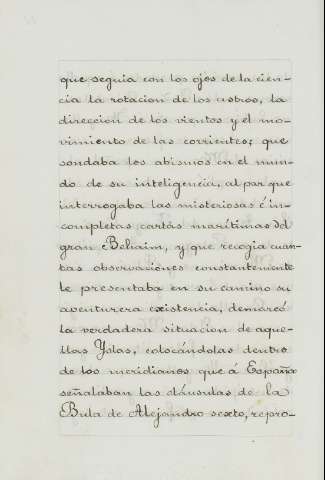 que seguia con los ojos de la cien-
cia la rotacion de los astros, la
direccion de los vientos y el mo-
vimiento de las corrientes; que
sondaba los abismos en el mun-
do de su inteligencia, al par que
interrogaba las misteriosas é in-
completas cartas marítimas del
gran Behaim, y que recogia cuan-
tas observaciones constantemente
le presentaba en su camino su
aventurera existencia, demarcó
la verdadera situacion de aque-
llas Yslas, colocándolas dentro
de los meridianos que á España
señalaban las cláusulas de la
Bula de Alejandro sexto, repro-